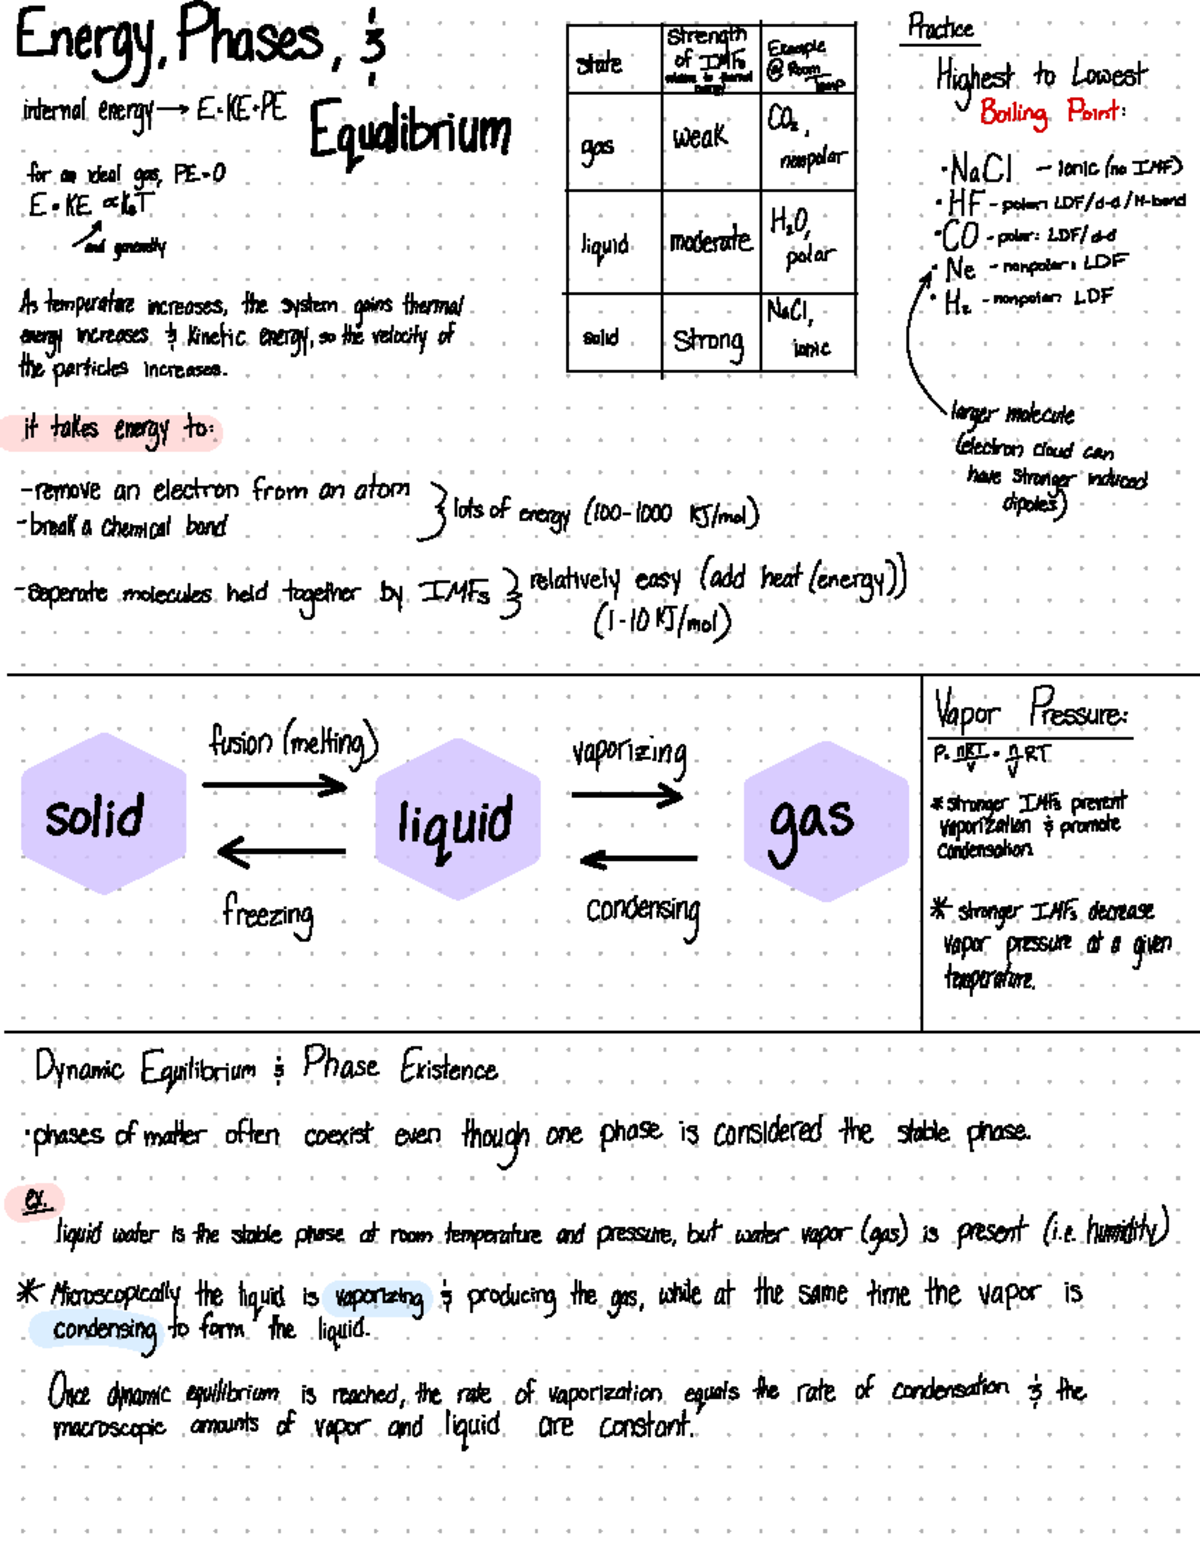 Energy, Phases, &
Equalibrium
internal energy → E=KE+PE
for an ideal gas, PE=0
E=KE ∝ k_BT
and generally
As temperature increases, the system gains thermal
energy increases & kinetic energy, so the velocity of
the particles increases.
state
Strength of IMFs relative to thermal energy
Example @ Room Temp
gas
weak
CO₂, nonpolar
liquid
moderate
H₂O, polar
solid
Strong
NaCl, ionic
Practice
Highest to Lowest
Boiling Point:
· NaCl — ionic (no IMF)
· HF - polar: LDF/d-d/H-bond
· CO - polar: LDF/d-d
· Ne - nonpolar: LDF
· H₂ - nonpolar: LDF
larger molecule
(electron cloud can
have stronger induced
dipoles)
it takes energy to:
- remove an electron from an atom
- break a chemical bond
} lots of energy (100-1000 KJ/mol)
- seperate molecules held together by IMFs } relatively easy (add heat (energy))
(1-10 KJ/mol)
solid
fusion (melting)
freezing
liquid
vaporizing
condensing
gas
Vapor Pressure:
P= nRT/V = n/V RT
* stronger IMFs prevent
vaporization & promote
condensation
* stronger IMFs decrease
vapor pressure at a given
temperature.
Dynamic Equilibrium & Phase Existence
· phases of matter often coexist even though one phase is considered the stable phase.
ex.
liquid water is the stable phase at room temperature and pressure, but water vapor (gas) is present (i.e. humidity)
* Microscopically the liquid is vaporizing & producing the gas, while at the same time the vapor is
condensing to form the liquid.
Once dynamic equilibrium is reached, the rate of vaporization equals the rate of condensation & the
macroscopic amounts of vapor and liquid are constant.